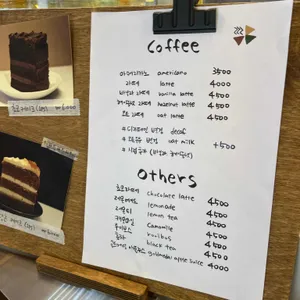 Coffee
아메리카노 americano 3500
라떼 latte 4000
바닐라 라떼 vanilla latte 4500
헤이즐넛 라떼 hazelnut latte 4500
오트 라떼 oat latte 4500
# 디카페인 변경 decaf
# 오트우유 변경 oat milk +500
# 시럽추가
Others
초코라떼 chocolate latte 4500
레몬에이드 lemonade 4500
레몬티 lemon tea 4500
캐모마일 Camomile 4500
루이보스 rooibos 4500
black tea 4500
apple juice 4000